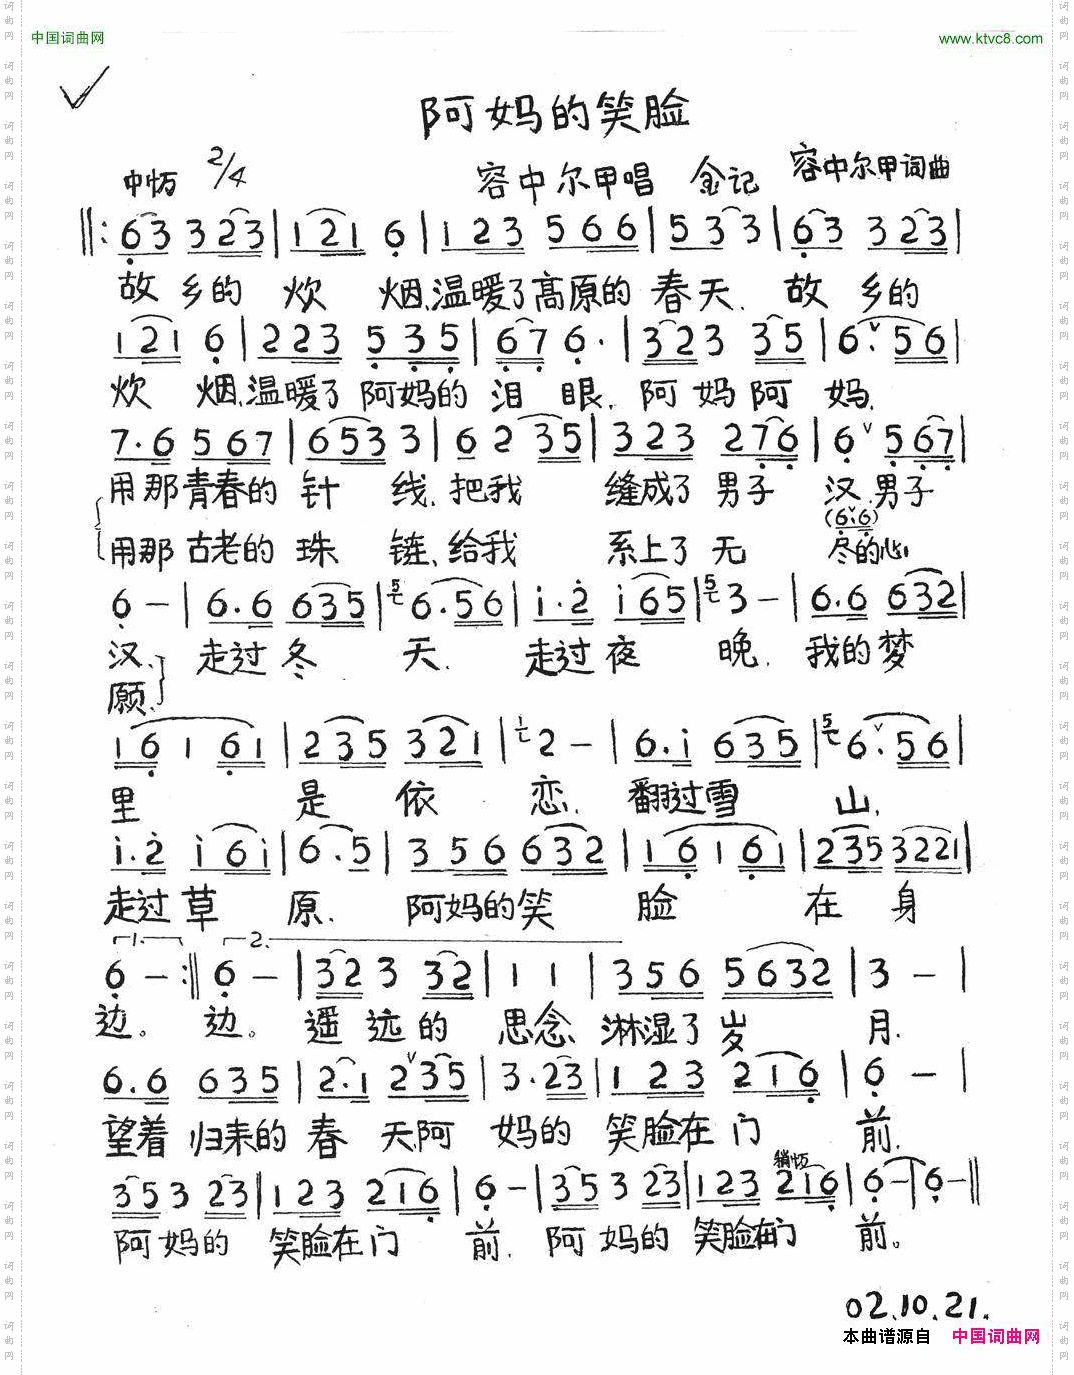 中国词曲网
www.ktvc8.com
阿妈的笑脸
中板 2/4 容中尔甲唱 金记 容中尔甲词曲
‖: 63 3 23 | 1 21 6 | 1 23 5 66 | 5 3 3 | 63 3 23 |
故乡的 炊 烟、温暖了高原的 春天. 故 乡的
1 21 6 | 2 23 5 35 | 67 6· | 323 35 | 6· 56 |
炊 烟、温暖了 阿妈的 泪 眼. 阿妈阿 妈.
7·6 5 67 | 6533 3 | 6 2 35 | 323 276 | 6 567 |
用那青春的 针 线、把我 缝成了 男子 汉、男子
(6·6)
用那 古老的 珠 链、给我 系上了 无 尽的心
6 – | 6·6 635 | 6·56 | i·2 i65 | 3 – | 6·6 632 |
汉、走过冬 天. 走过夜 晚. 我的梦
愿、
16 1 61 | 235 321 | 2 – | 6·i 635 | 6·56 |
里 是 依 恋. 翻过雪 山.
i·2 i6i | 6·5 | 356 632 | 16 1 61 | 235 3221 |
走过草 原. 阿妈的笑 脸 在 身
1. 2.
6 – :‖ 6 – | 32 3 32 | 1 1 | 356 5632 | 3 – |
边。 边。 遥远的 思念、淋湿了岁 月.
6·6 635 | 2·1 235 | 3·23 | 1 23 216 | 6 – |
望着 归来的 春 天,阿 妈的 笑脸在门 前.
稍慢
353 23 | 1 23 216 | 6 – | 353 23 | 1 23 216 | 6 – | 6 – ‖
阿妈的 笑脸在门 前. 阿妈的 笑脸在门 前。
02.10.21.
本曲谱源自 中国词曲网